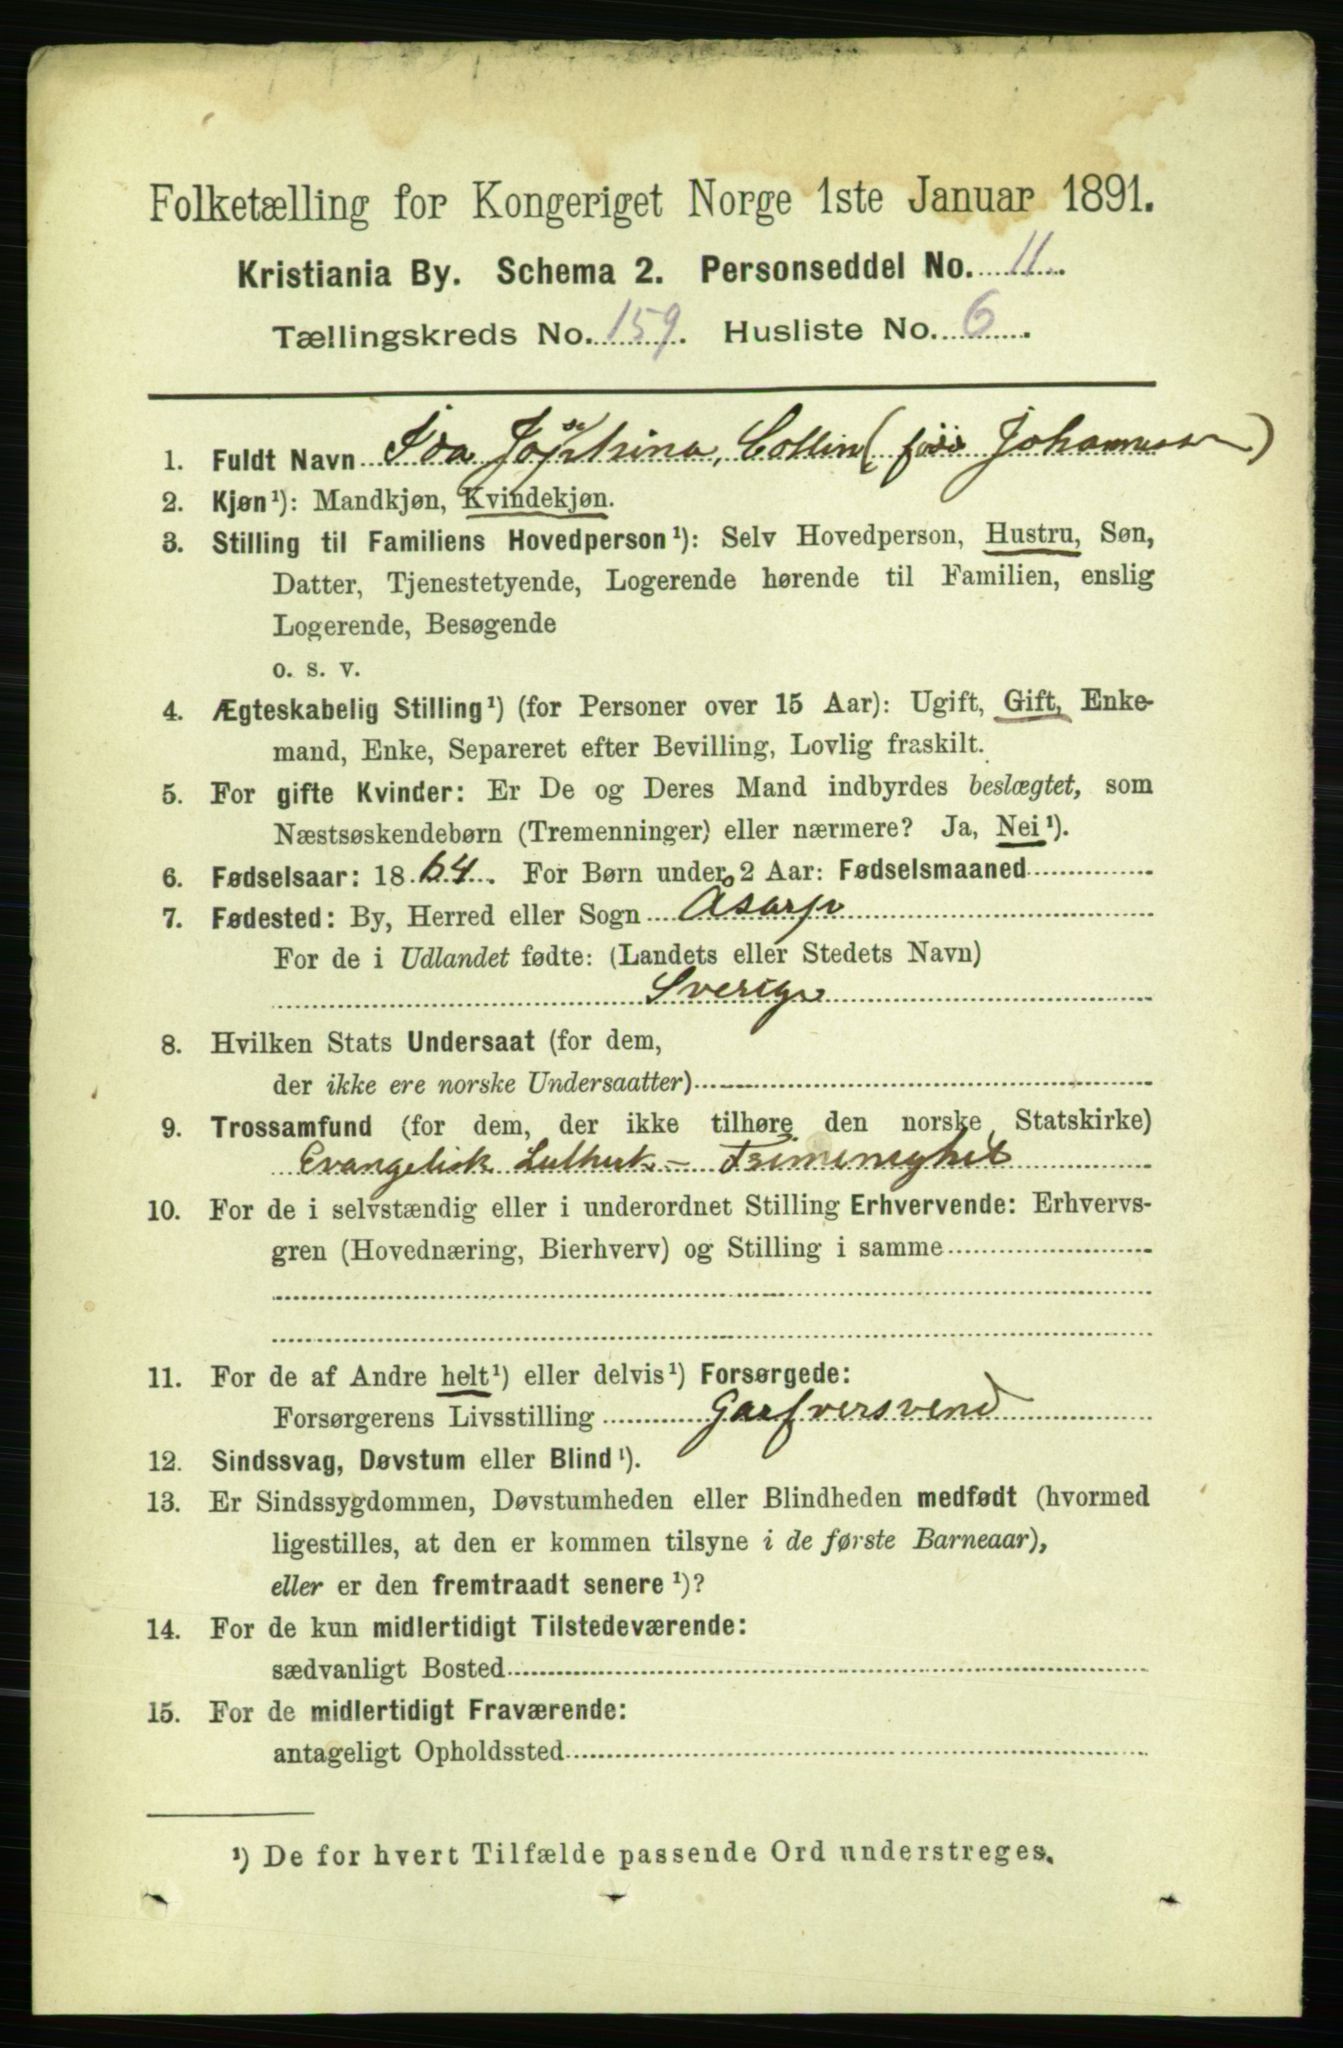 Folketælling for Kongeriget Norge 1ste Januar 1891.
Kristiania By. Schema 2. Personseddel No. 11.
Tællingskreds No. 159. Husliste No. 6.
1. Fuldt Navn Ida Josephina, Collin (född Johannesson)
2. Kjøn¹): Mandkjøn, Kvindekjøn.
3. Stilling til Familiens Hovedperson¹): Selv Hovedperson, Hustru, Søn,
Datter, Tjenestetyende, Logerende hørende til Familien, enslig
Logerende, Besøgende
o. s. v.
4. Ægteskabelig Stilling¹) (for Personer over 15 Aar): Ugift, Gift, Enke-
mand, Enke, Separeret efter Bevilling, Lovlig fraskilt.
5. For gifte Kvinder: Er De og Deres Mand indbyrdes beslægtet, som
Næstsøskendebørn (Tremenninger) eller nærmere? Ja, Nei¹).
6. Fødselsaar: 1864. For Børn under 2 Aar: Fødselsmaaned
7. Fødested: By, Herred eller Sogn Åsarp
For de i Udlandet fødte: (Landets eller Stedets Navn)
Sverige
8. Hvilken Stats Undersaat (for dem,
der ikke ere norske Undersaatter)
9. Trossamfund (for dem, der ikke tilhøre den norske Statskirke)
Evangelisk Luthersk - Frimenighet
10. For de i selvstændig eller i underordnet Stilling Erhvervende: Erhvervs-
gren (Hovednæring, Bierhverv) og Stilling i samme
11. For de af Andre helt¹) eller delvis¹) Forsørgede:
Forsørgerens Livsstilling Garfversvend
12. Sindssvag, Døvstum eller Blind¹).
13. Er Sindssygdommen, Døvstumheden eller Blindheden medfødt (hvormed
ligestilles, at den er kommen tilsyne i de første Barneaar),
eller er den fremtraadt senere¹)?
14. For de kun midlertidigt Tilstedeværende:
sædvanligt Bosted
15. For de midlertidigt Fraværende:
antageligt Opholdssted
¹) De for hvert Tilfælde passende Ord understreges.